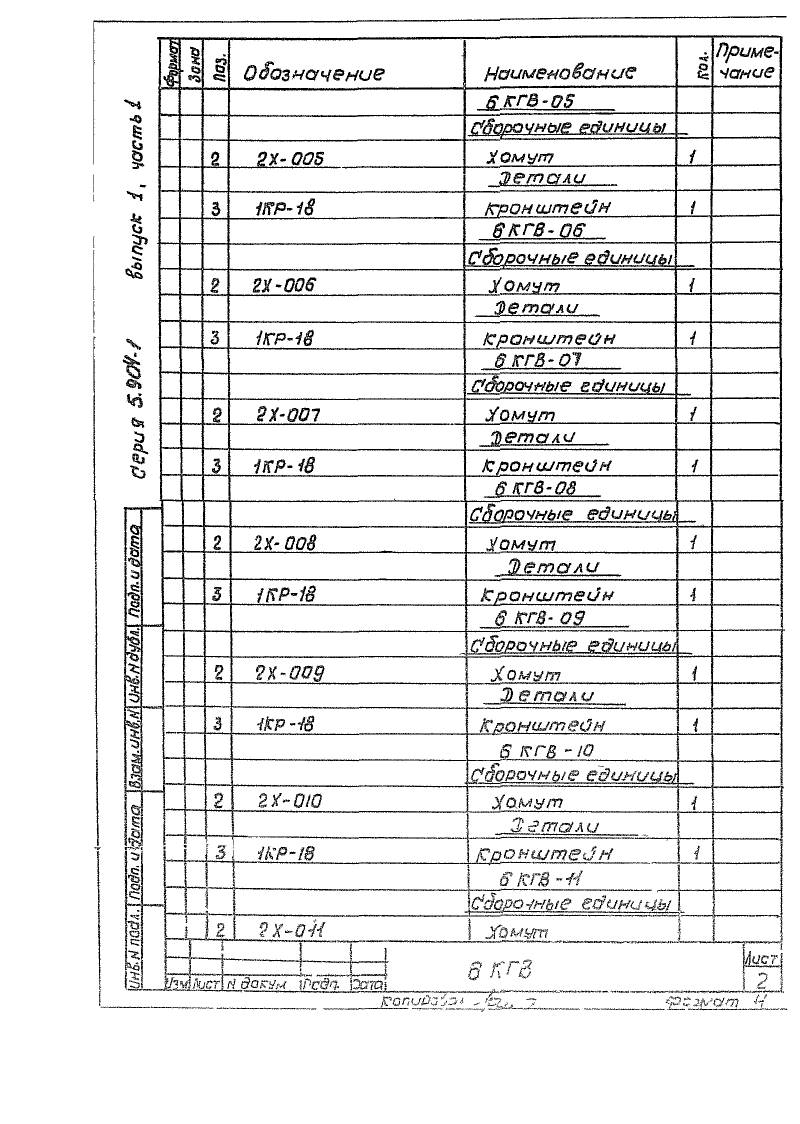 Серия 5.904-1 выпуск 1, часть 1
Формат Зона Поз. Обозначение Наименование Кол. Приме-
чание
6 КГВ-05
Сборочные единицы
2 2Х-005 Хомут 1
Детали
3 1КР-18 Кронштейн 1
6 КГВ-06
Сборочные единицы
2 2Х-006 Хомут 1
Детали
3 1КР-18 Кронштейн 1
6 КГВ-07
Сборочные единицы
2 2Х-007 Хомут 1
Детали
3 1КР-18 Кронштейн 1
6 КГВ-08
Сборочные единицы
2 2Х-008 Хомут 1
Детали
3 1КР-18 Кронштейн 1
6 КГВ-09
Сборочные единицы
2 2Х-009 Хомут 1
Детали
3 1КР-18 Кронштейн 1
6 КГВ-10
Сборочные единицы
2 2Х-010 Хомут 1
Детали
3 1КР-18 Кронштейн 1
6 КГВ-11
Сборочные единицы
2 2Х-011 Хомут
Инв.N подл. Подп. и дата Взам.инв.N Инв.N дубл. Подп. и дата
Изм Лист N докум. Подп. Дата
6 КГВ
Лист
2
Копировал Формат